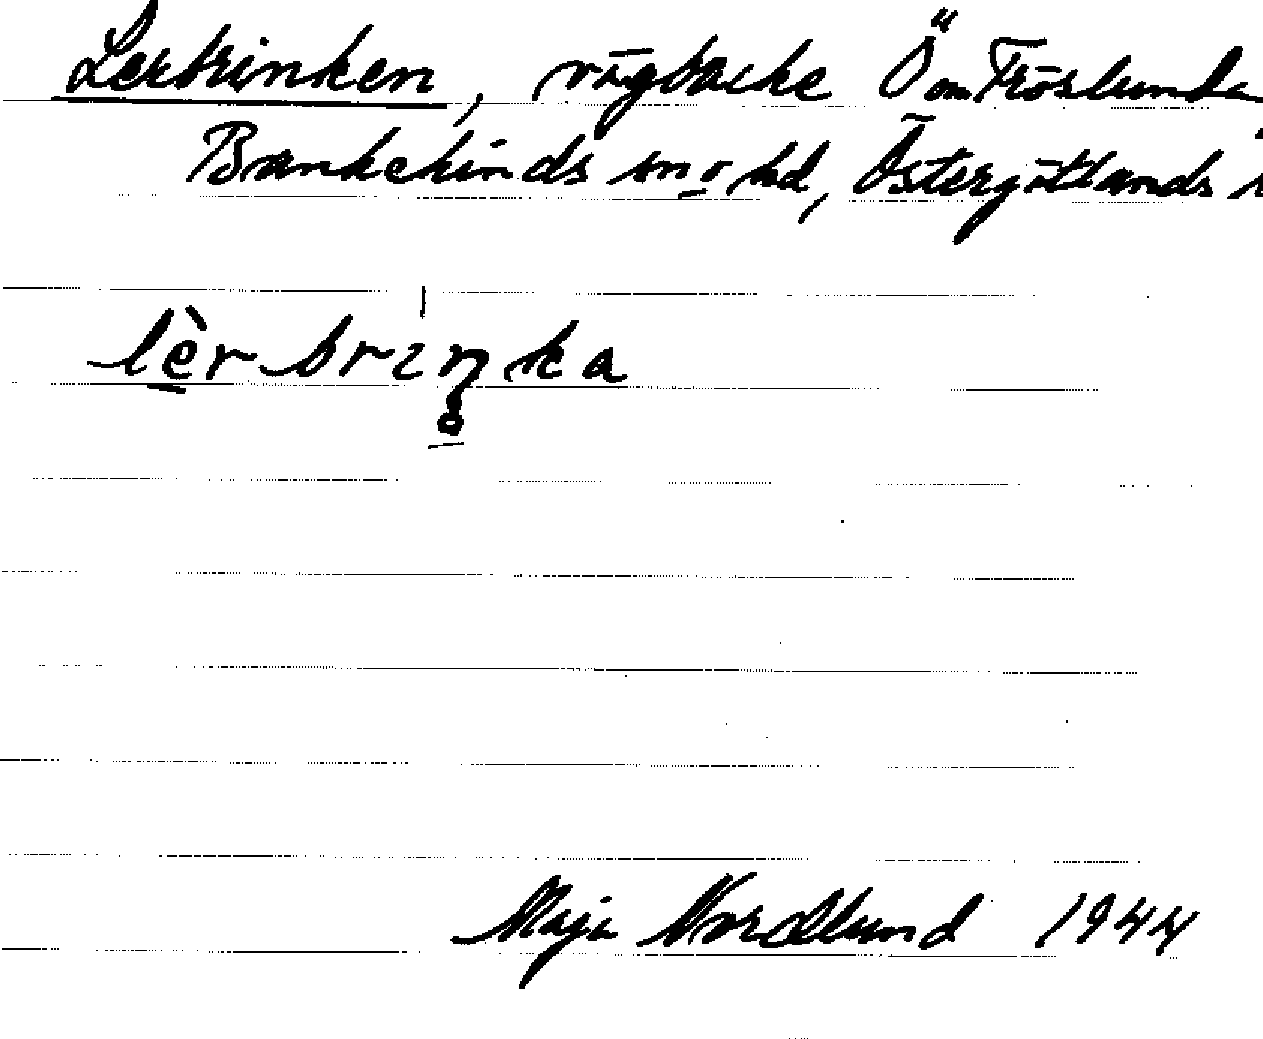 Lerbrinken, vägbacke Ö om Fröslunda
Bankekinds sn o hd, Östergötlands
lèrbrıŋka
Maja Nordlund 1944